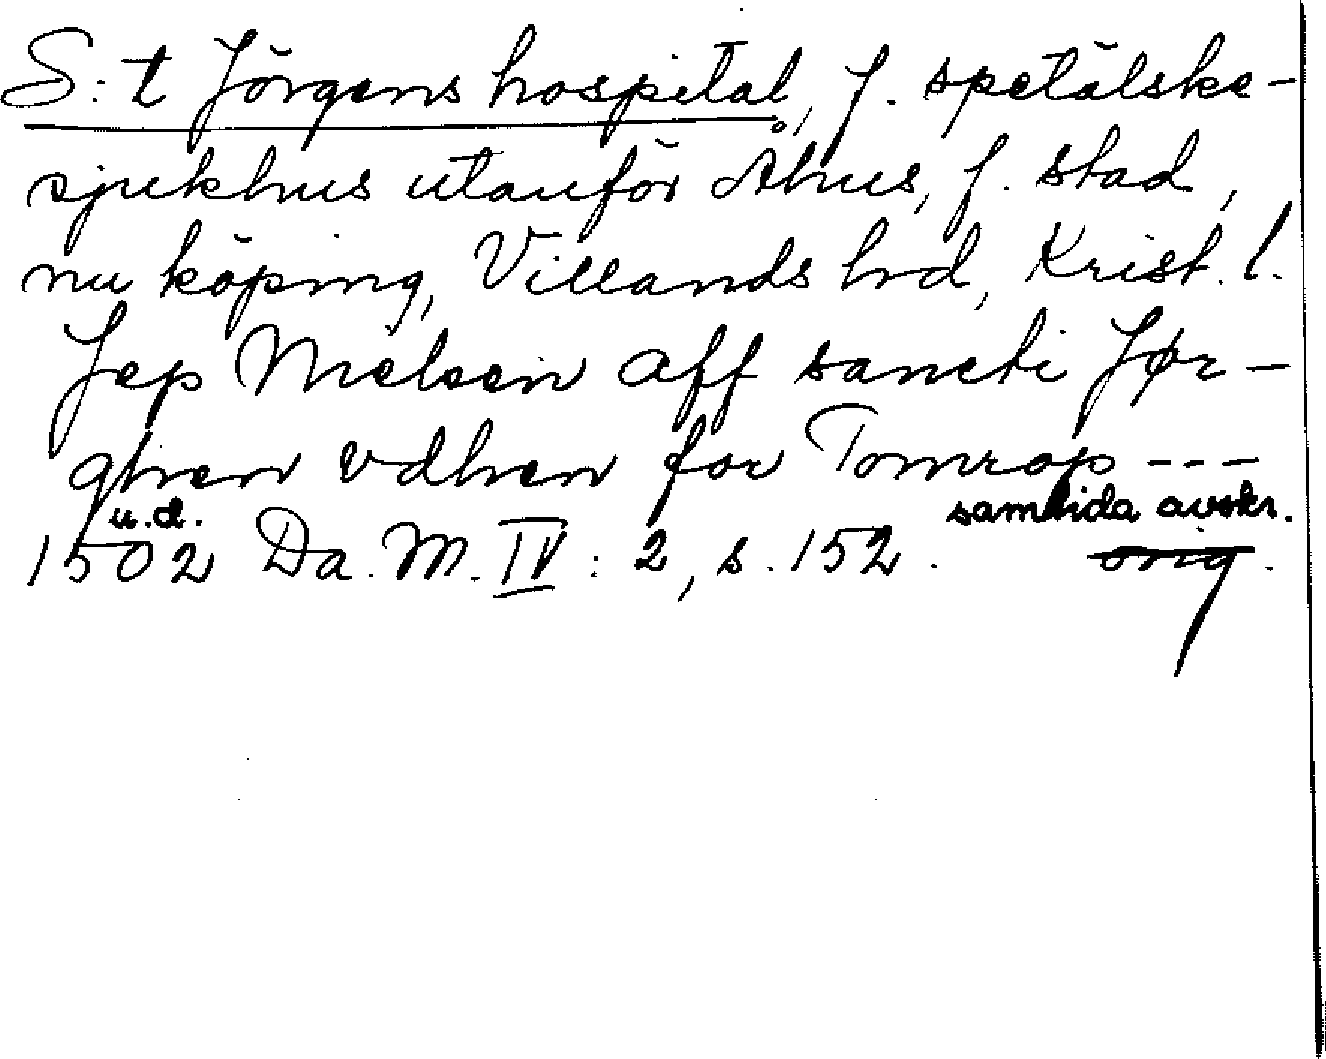 S:t Jörgens hospital, f. spetälske-
sjukhus utanför Åhus, f. stad,
nu köping, Villands hrd, Krist. l.
Jep Nielsen aff sancti Jør-
ghen vdhen for Tomrop ---
u.d. samtida avskr.
1502 Da. M. IV : 2, s. 152. orig.